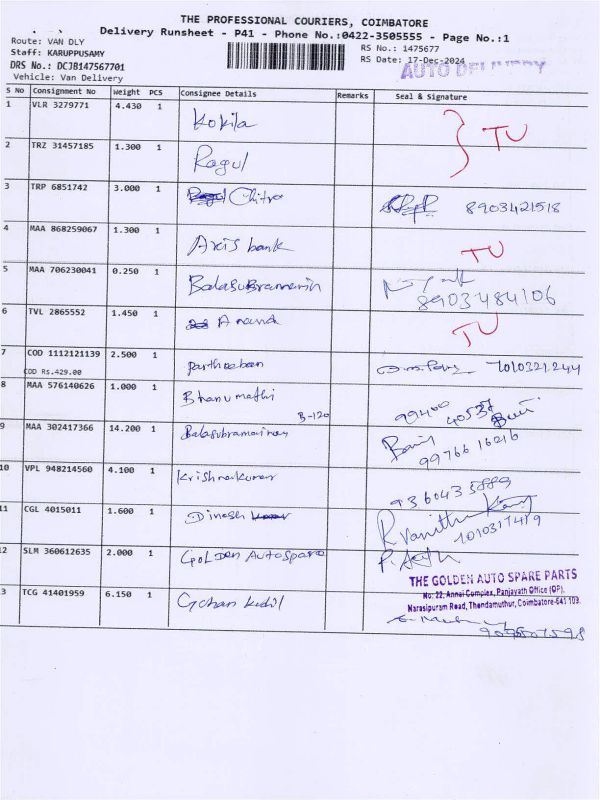 THE PROFESSIONAL COURIERS, COIMBATORE
Delivery Runsheet - P41 - Phone No.:0422-3505555 - Page No.:1
Route: VAN DLY
Staff: KARUPPUSAMY
DRS No.: DCJB147567701
Vehicle: Van Delivery
RS No.: 1475677
RS Date: 17-Dec-2024
AUTO DELIVERY
S No Consignment No Weight PCS Consignee Details Remarks Seal & Signature
1 VLR 3279771 4.430 1 Kokila TU
2 TRZ 31457185 1.300 1 Ragul
3 TRP 6851742 3.000 1 Chitra 8903421518
4 MAA 868259067 1.300 1 Axis bank TU
5 MAA 706230041 0.250 1 Balasubramanin 8903484106
6 TVL 2865552 1.450 1 Anand TU
7 COD 1112121139 2.500 1 Partheeban 7010321244
COD Rs.429.00
8 MAA 576140626 1.000 1 Bhanumathi 99400 40537
B-120
9 MAA 302417366 14.200 1 Balasubramainan 99766 16216
10 VPL 948214560 4.100 1 Krishnakumar 9360435889
11 CGL 4015011 1.600 1 Dinesh R. Vanitha
12 SLM 360612635 2.000 1 GOLDEN Autospare
THE GOLDEN AUTO SPARE PARTS
No: 22, Annai Complex, Panjayath Office (OP),
Narasipuram Road, Thondamuthur, Coimbatore-641 109.
13 TCG 41401959 6.150 1